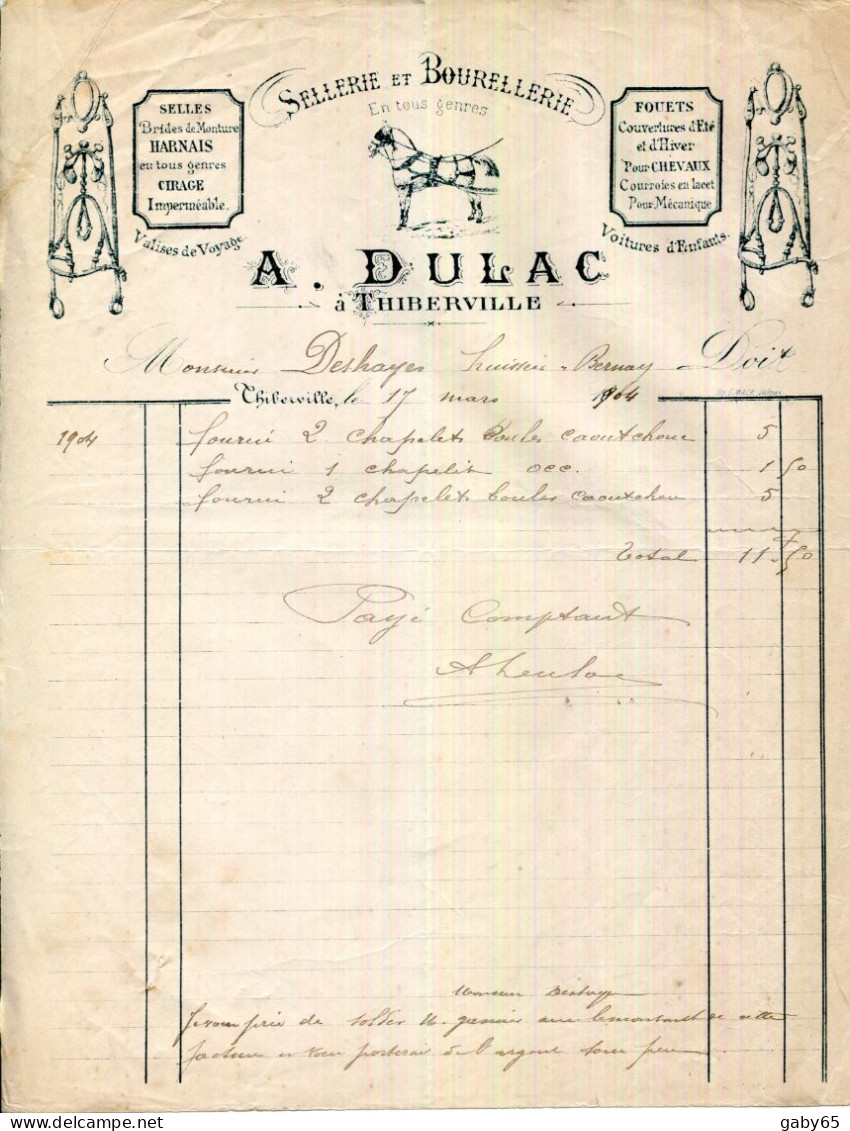 SELLERIE ET BOURELLERIE
En tous genres
SELLES
Brides de Monture
HARNAIS
en tous genres
CIRAGE
Imperméable.
Valises de Voyage
FOUETS
Couvertures d'Eté
et d'Hiver
Pour CHEVAUX
Courroies en lacet
Pour Mécanique
Voitures d'Enfants.
A. DULAC
à THIBERVILLE
Monsieur Deshayes huissier Bernay Doit
Thiberville, le 17 mars 1904
1904 fourni 2 chapelets boules caoutchouc 5
fourni 1 chapelit occ. 1 50
fourni 2 chapelets boules caoutchou 5
Total 11 50
Payé Comptant
Monsieur Deshayes
Je vous prie de solder M. avec le montant de cette
facture et vous porterai de l'argent sous peu
gaby65